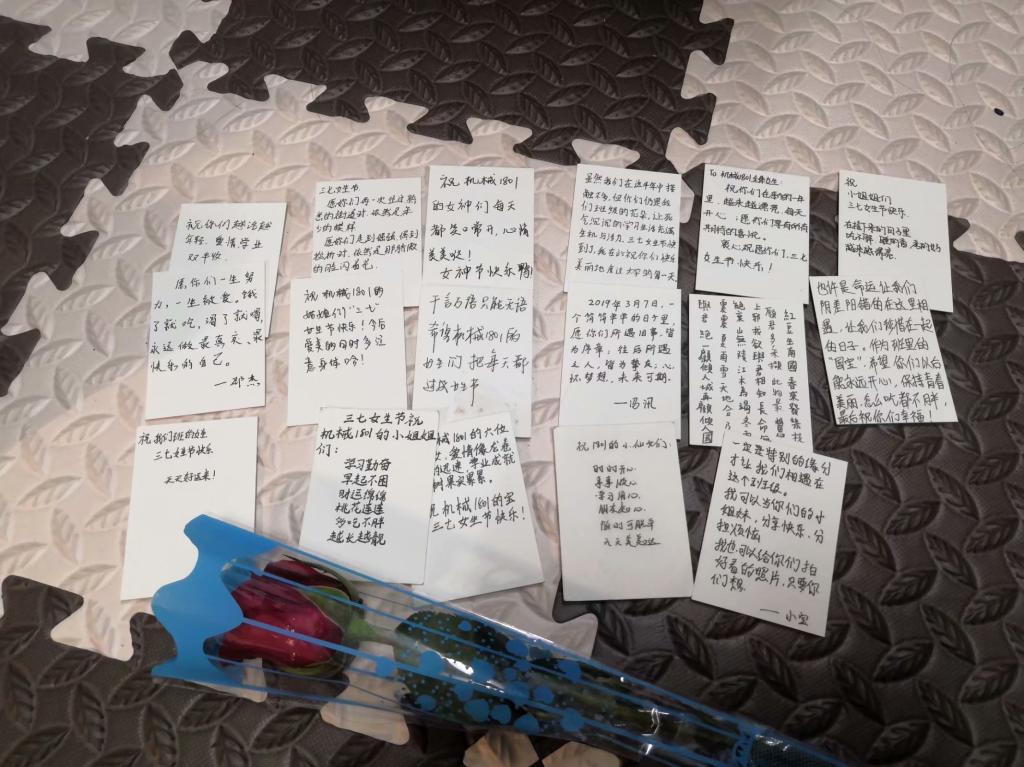 祝你们越活越
年轻，爱情学业
双丰收
三七女生节
愿你们再一次走过熟
悉的街道时，依然是来
时的模样
祝机械1801
的女神们每天
都笑口常开，心情
美美哒！
女神节快乐鸭！
虽然我们在这半年中接
触不多，但你们仍是我
们班级的花朵，让死
气沉沉的学习生活充满
生机与活力，三七女生节快
到了，我在此祝你们快乐
美丽地度过大学的每一天
To 机械1801全体女生：
祝你们在新的一年
里，越来越漂亮，每天
开心；愿你们享有所有
所期待的喜悦。
衷心祝愿你们，三七
女生节快乐！
祝
小姐姐们
三七女生节快乐
在接下来的日子里
越来越漂亮
愿你们一生努
力，一生被爱。饿
了就吃，渴了就喝，
永远做最真实、最
快乐的自己。
祝机械1801的
姑娘们“三七”
女生节快乐！今后
爱美的同时多注
意身体哈！
千言万语只能无语
希望机械1801的
女生们把每天都
过成女生节
2019年3月7日，一
个简简单单的日子里，
愿你们所遇旧事，皆
为序章；往后所遇
之人，皆为挚友；心
怀梦想，未来可期。
紅豆生南國春來發幾枝
願君多采擷此物最相思
上邪我欲與君相知長命
無絕衰山無陵江水為竭冬
雷震震夏雨雪天地合乃
敢與君絕一顧傾人城再顧傾人國
也许是命运让我们
阴差阳错的在这里相
遇，让我们珍惜在一起
的日子。作为班里的
“国宝”，希望你们以后
能永远开心，保持青春
美丽，怎么吃都不胖，
最后祝你们幸福！
祝我们班的女生
三七女生节快乐
天天好运来！
三七女生节祝
机械1801的小姐姐
们：
学习勤奋
早起不困
财运绵绵
桃花连连
多吃不胖
越长越靓
机械1801的六位
爱情像龙卷
学业成就
硕果累累。
祝机械1801的
三七女生节快乐！
祝1801的小仙女们：
时时开心
事事顺心
学习用心
朋友知心
天天美美哒
一定是特别的缘分
才让我们相遇在
这个班级。
我可以当你们的小
姐妹，分享快乐、分
担烦恼
我也可以给你们拍
好看的照片，只要你
们想